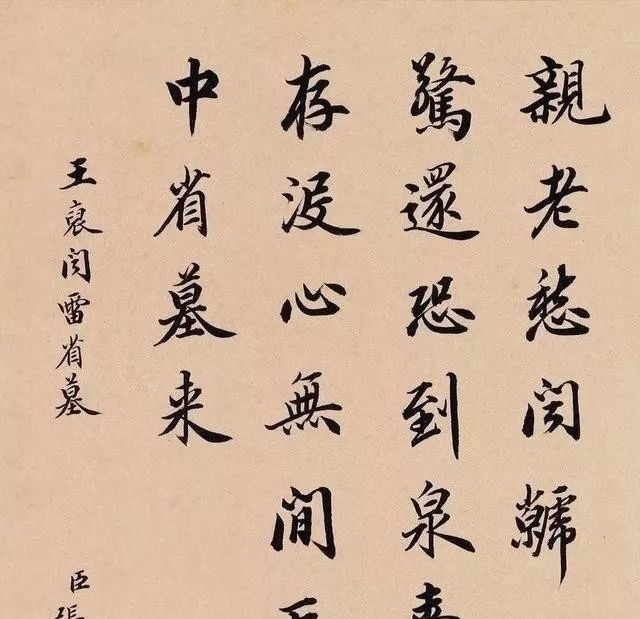 親老愁聞虩
驚還恐到泉
存沒心無間
中省墓来
王裒聞雷省墓
臣張